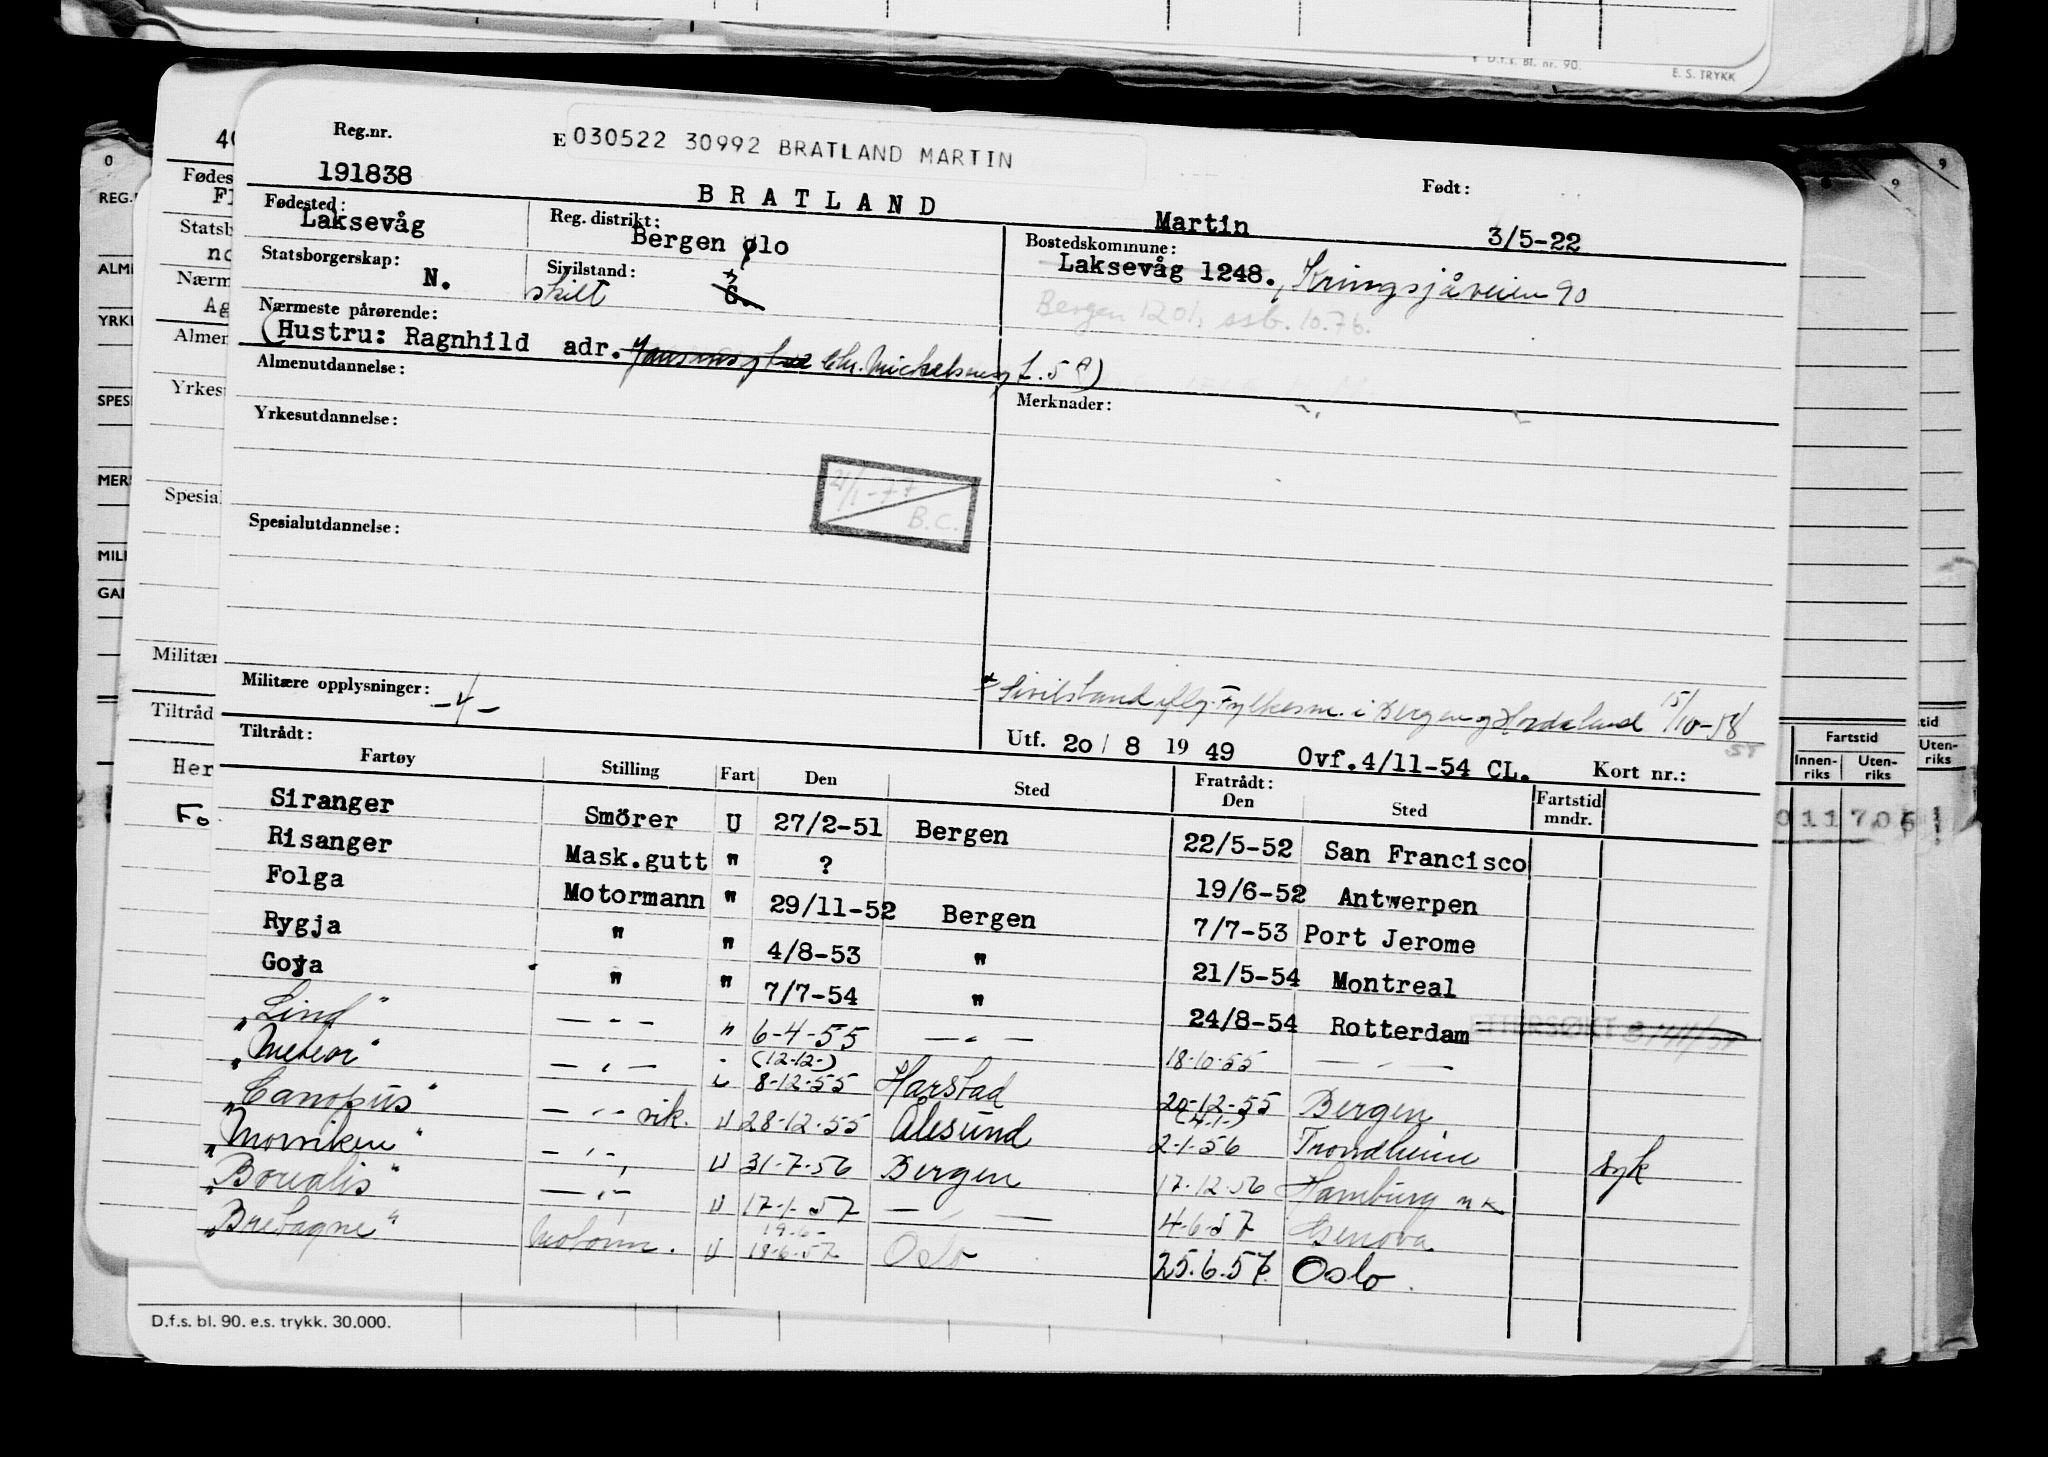 D.f.s. Bl. nr. 90. E. S. TRYKK
Reg.nr. E 030522 30992 BRATLAND MARTIN
191838 BRATLAND Martin Født: 3/5-22
Fødested: Laksevåg Reg. distrikt: Bergen ølo Bostedskommune: Laksevåg 1248., Kringsjåveien 90
Statsborgerskap: N. Sivilstand: skilt G. Bergen 1201, ssb. 10.76.
Nærmeste pårørende:
(Hustru: Ragnhild adr. Chr. Mickelsensg L. 5 )
Almenutdannelse: Merknader:
Yrkesutdannelse:
21/1-77 B.C.
Spesialutdannelse:
Militære opplysninger: -4-
x Sivilstand iflg. Fylkesm. i Bergen og Hordaland 15/10-58
Utf. 20/8 1949 Ovf. 4/11-54 CL. Kort nr.:
Tiltrådt: Fratrådt:
Fartøy Stilling Fart Den Sted Den Sted Fartstid mndr.
Siranger Smörer U 27/2-51 Bergen 22/5-52 San Francisco
Risanger Mask.gutt " ? 19/6-52 Antwerpen
Folga Motormann " 29/11-52 Bergen 7/7-53 Port Jerome
Rygja " " 4/8-53 " 21/5-54 Montreal
Goya " " 7/7-54 " 24/8-54 Rotterdam ETTERSØKT
"Lind" - " - " 6-4-55 - " - 18-10-55 - " -
"Meteor" - " - i (12-12-) 8-12-55 Harstad 20-12-55 Bergen
"Canopus" - " - vik. U 28-12-55 Ålesund (4-1-) 2-1-56 Trondheim syk
"Morviken" - " - U 31-7-56 Bergen 17-12-56 Hamburg mk
"Borealis" - " - U 17-1-57 - " - 4-6-57 Genova
"Bretagne" Motorm. U 19-6- 18-6-57 Oslo 25.6.57. Oslo.
D.f.s. bl. 90. e.s. trykk. 30.000.
0
REG.
ALM
YRK
SPES
MER
MILI
GAI
Fødes
Statsb
Nærm
Ag
Almen
Yrkes
Spesia
Militær
Tiltråd
Her
Fo
9
Fartstid
Innenriks Utenriks
011706